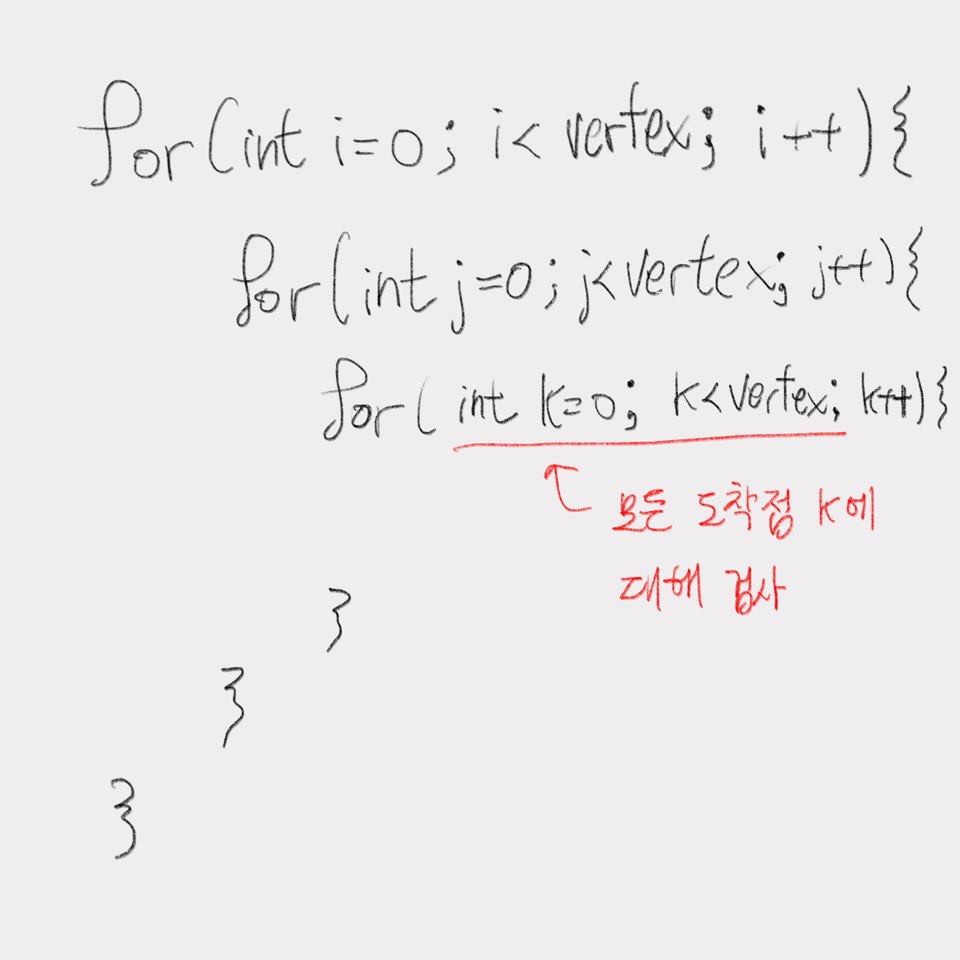 for(int i=0; i< vertex; i++){
for(int j=0; j<vertex; j++){
for( int k=0; k<vertex; k++){
모든 도착점 k에
대해 검사
}
}
}